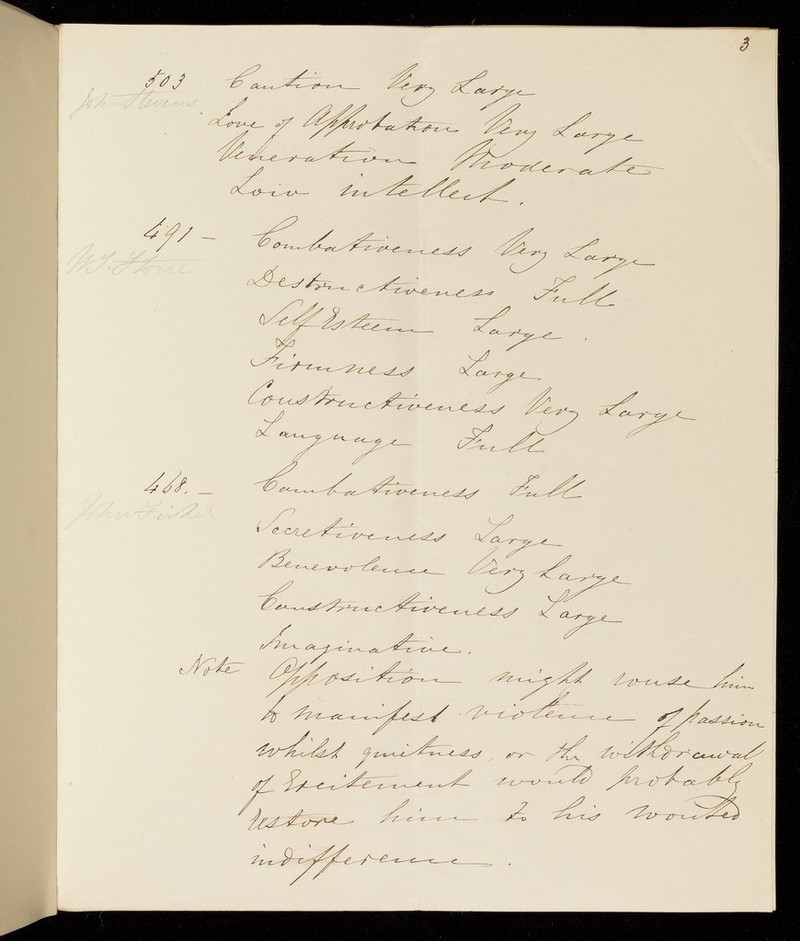 3
503 Caution Very Large
John Stevens
Love of Approbation Very Large
Veneration Moderate
Low intellect.
491 – Combativeness Very Large
W. J. Stone
Destructiveness Full
Self Esteem Large.
Firmness Large
Constructiveness Very Large
Language Full
468. – Combativeness Full
John Fisher
Secretiveness Large
Benevolence Very Large
Constructiveness Large
Imaginative.
Note Opposition might rouse him
to manifest violence of passion
whilst quietness, or the withdrawal
of Excitement would probably
restore him to his wonted
indifference.